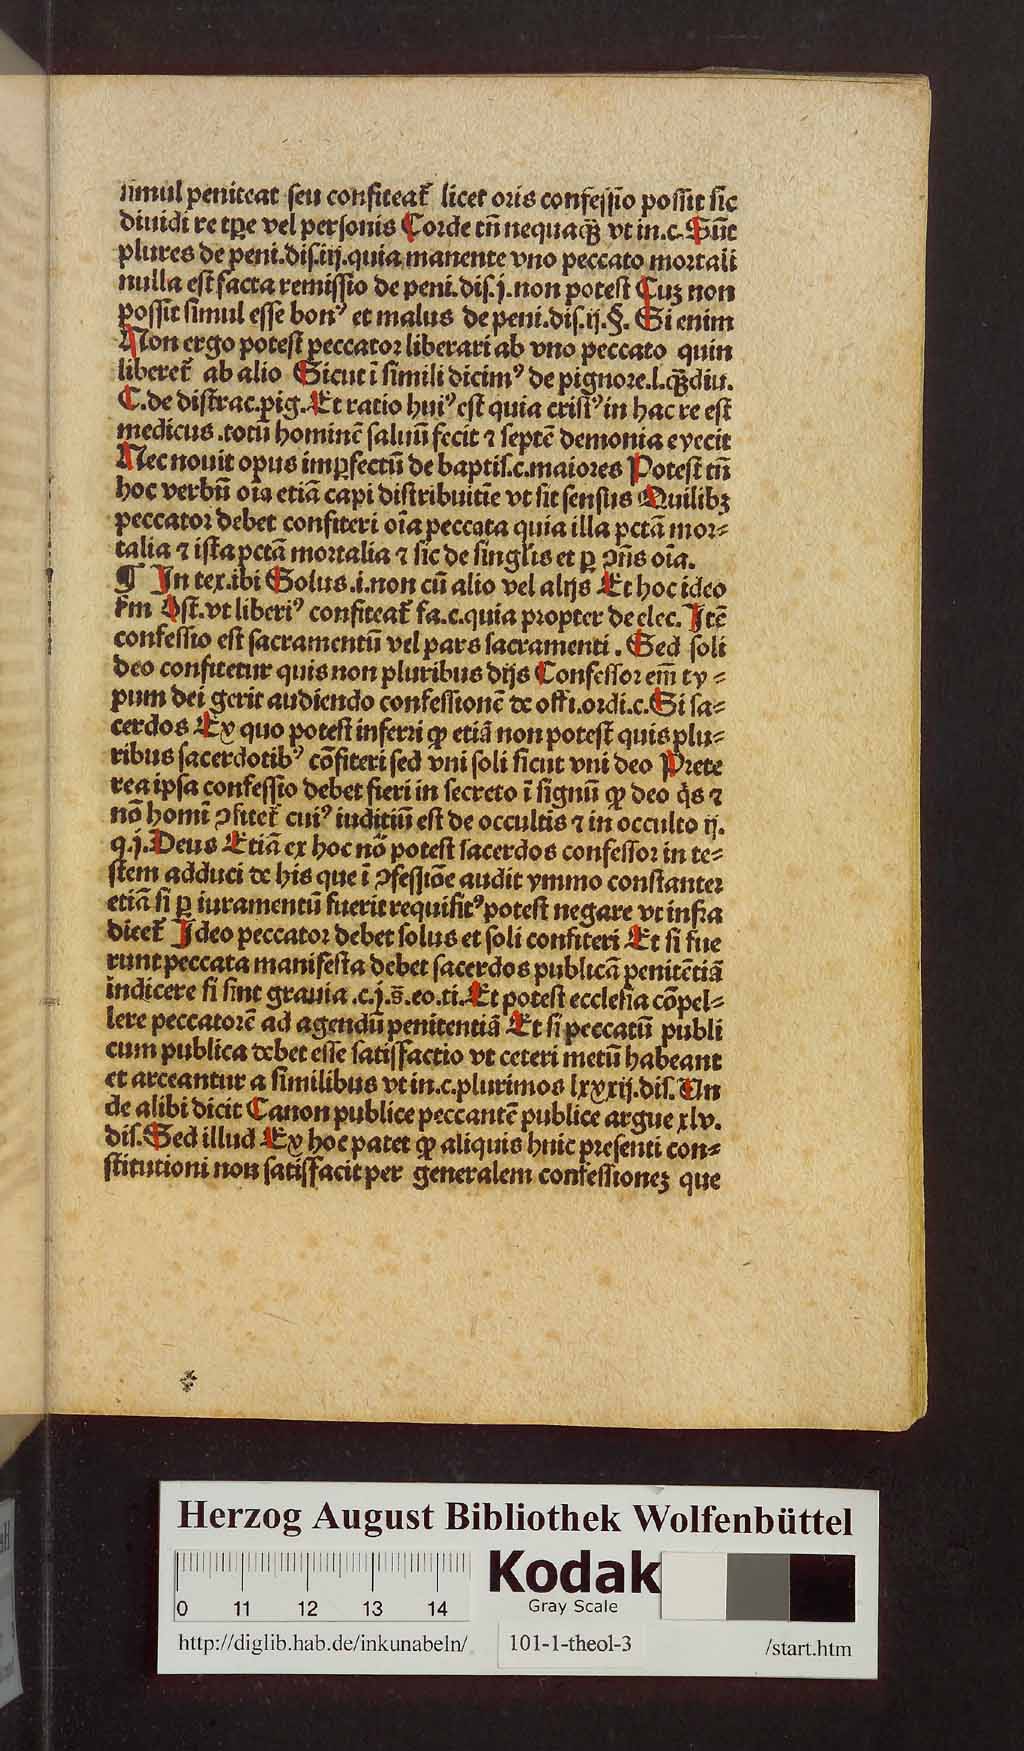 simul peniteat seu confiteat᷑ licet oris confessio possit sic
diuidi re tꝑe vel personis Corde tn̄ nequaꝙ̄ vt in.c. Sūt
plures de peni.dis.iij.quia manente vno peccato mortali
nulla est facta remissio de peni.dis.j.non potest Cuꝫ non
possit simul esse bonꝰ et malus de peni.dis.ij.§. Si enim
Non ergo potest peccator liberari ab vno peccato quin
liberet᷑ ab alio Sicut ī simili dicimꝰ de pignore.l.ꝙ̄diu.
C.de distrac.pig.Et ratio huiꝰ est quia cristꝰ in hac re est
medicus .totū hominē saluū fecit ⁊ septē demonia eyecit
Nec nouit opus imꝑfectū de baptis.c.maiores Potest tn̄
hoc verbū oīa etiā capi distributiue vt sit sensus Quilibꝫ
peccator debet confiteri oīa peccata quia illa pctā mor⸗
talia ⁊ ista pctā mortalia ⁊ sic de singlis et ꝑ ꝯn̄s oīa.
¶ In tex.ibi Solus .i.non cū alio vel alijs Et hoc ideo
ẜm Ost.vt liberiꝰ confiteat᷑ fa.c.quia propter de elec. Itē
confessio est sacramentū vel pars sacramenti . Sed soli
deo confitetur quis non pluribus dijs Confessor em̄ ty⸗
pum dei gerit audiendo confessionē de offi.ordi.c.Si sa⸗
cerdos Ex quo potest inferri ꝙ etiā non potest quis plu⸗
ribus sacerdotibꝰ cōfiteri sed vni soli sicut vni deo Prete
rea ipsa confessio debet fieri in secreto ī signū ꝙ deo q̇s ⁊
nō homī ꝯfitet᷑ cuiꝰ iuditiū est de occultis ⁊ in occulto ij.
q.j.Deus Etiā ex hoc nō potest sacerdos confessor in te⸗
stem adduci de his que ī ꝯfessiōe audit ymmo constanter
etiā si ꝑ iuramentū fuerit requisitꝰ potest negare vt infra
dicet᷑ Ideo peccator debet solus et soli confiteri Et si fue
runt peccata manifesta debet sacerdos publicā penitētiā
indicere si sint grauia .c.j.s̄.eo.ti.Et potest ecclesia cōpel⸗
lere peccatorē ad agendū penitentiā Et si peccatū publi
cum publica debet esse satisfactio vt ceteri metū habeant
et arceantur a similibus vt in.c.plurimos lxxxij.dis. Vn
de alibi dicit Canon publice peccantē publice argue xlv.
dis.Sed illud Ex hoc patet ꝙ aliquis huic presenti con⸗
stitutioni non satisfacit per generalem confessioneꝫ que
Herzog August Bibliothek Wolfenbüttel
Kodak
Gray Scale
0 11 12 13 14
http://diglib.hab.de/inkunabeln/ 101-1-theol-3 /start.htm